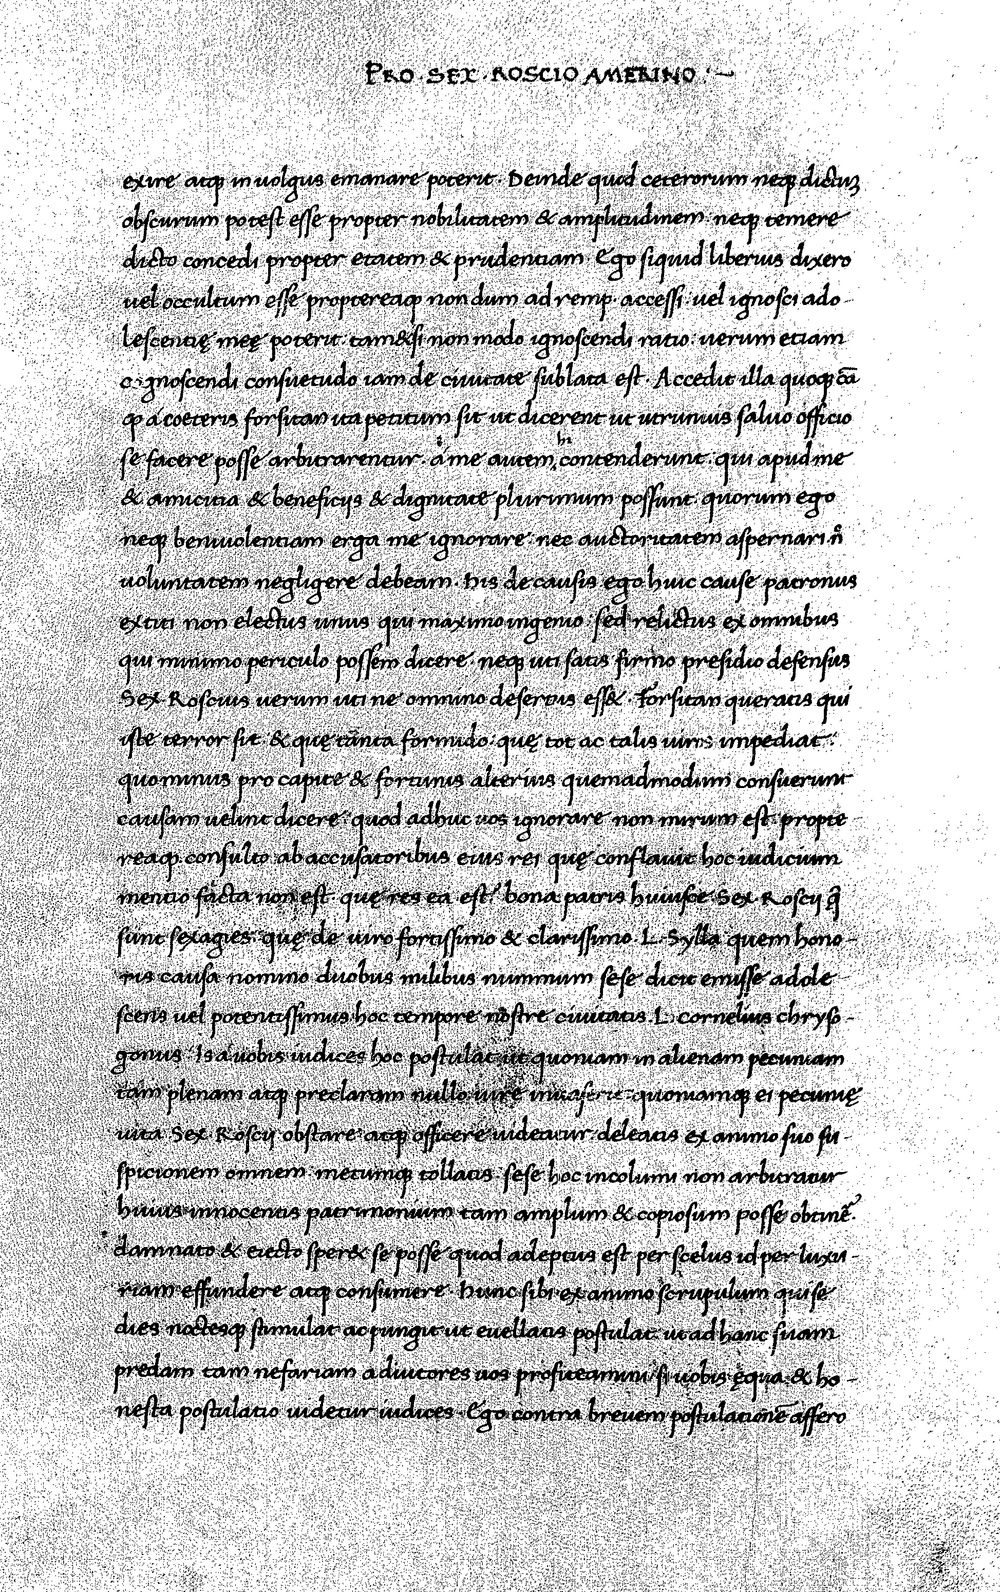 PRO · SEX · ROSCIO AMERINO ·
exire atqꝫ in uolgus emanare poterit · Deinde quod ceterorum neqꝫ dictuꝫ
obscurum potest esse propter nobilitatem & amplitudinem · neqꝫ temere
dicto concedi propter etatem & prudentiam · Ego siquid liberius dixero
uel occultum esse propterea qꝫ nondum ad remp. accessi · uel ignosci ado-
lescentię meę poterit · tam&si non modo ignoscendi ratio · uerum etiam
cognoscendi consuetudo iam de ciuitate sublata est · Accedit illa quoqꝫ cā
ꝙ a coeteris forsitan ita petitum sit ut dicerent ut utrumuis saluo officio
se facere posse arbitrarentur · a me autem hi contenderunt · qui apud me
& amicitia & beneficijs & dignitate plurimum possunt · quorum ego
neqꝫ beniuolentiam erga me ignorare · nec auctoritatem aspernari · n̄
uoluntatem negligere debeam · His de causis ego huic cause patronus
extiti non electus unus qui maximo ingenio · sed relictus ex omnibus
qui minimo periculo possem dicere · neqꝫ uti satis firmo presidio defensus
Sex · Roscius uerum uti ne omnino desertus ess& · Forsitan queratis qui
iste terror sit · & quę tanta formido · quę tot ac talis uiros impediat ·
quominus pro capite & fortunis alterius quemadmodum consuerunt
causam uelint dicere · quod adhuc uos ignorare non mirum est · propte-
rea qꝫ consulto ab accusatoribus eius rei quę conflauit hoc iudicium
mentio facta non est · que res ea est? bona patris huiusce Sex · Roscij q̄
sunt sexagies · quę de uiro fortissimo & clarissimo · L · Sylla quem hono-
ris causa nomino duobus milibus nummum sese dicit emisse adole-
scens uel potentissimus hoc tempore nostre ciuitatis · L · cornelius chryso-
gonus · Is a uobis iudices hoc postulat ut quoniam in alienam pecuniam
tam plenam atqꝫ preclaram nullo iure inuaserit · quoniamqꝫ ei pecunię
uita Sex · Roscij obstare atqꝫ officere uideatur · deleatis ex animo suo su-
spicionem omnem · metumqꝫ tollatis · sese hoc incolumi non arbitratur
huius innocentis patrimonium tam amplum & copiosum posse obtinē ·
damnato & eiecto sper& se posse quod adeptus est per scelus id per luxu-
riam effundere atqꝫ consumere · Hunc sibi ex animo scrupulum qui se
dies noctesqꝫ stimulat ac pungit ut euellatis postulat · ut ad hanc suam
predam tam nefariam adiutores uos profiteamini · si uobis ęqua & ho-
nesta postulatio uidetur iudices · Ego contra breuem postulationē affero